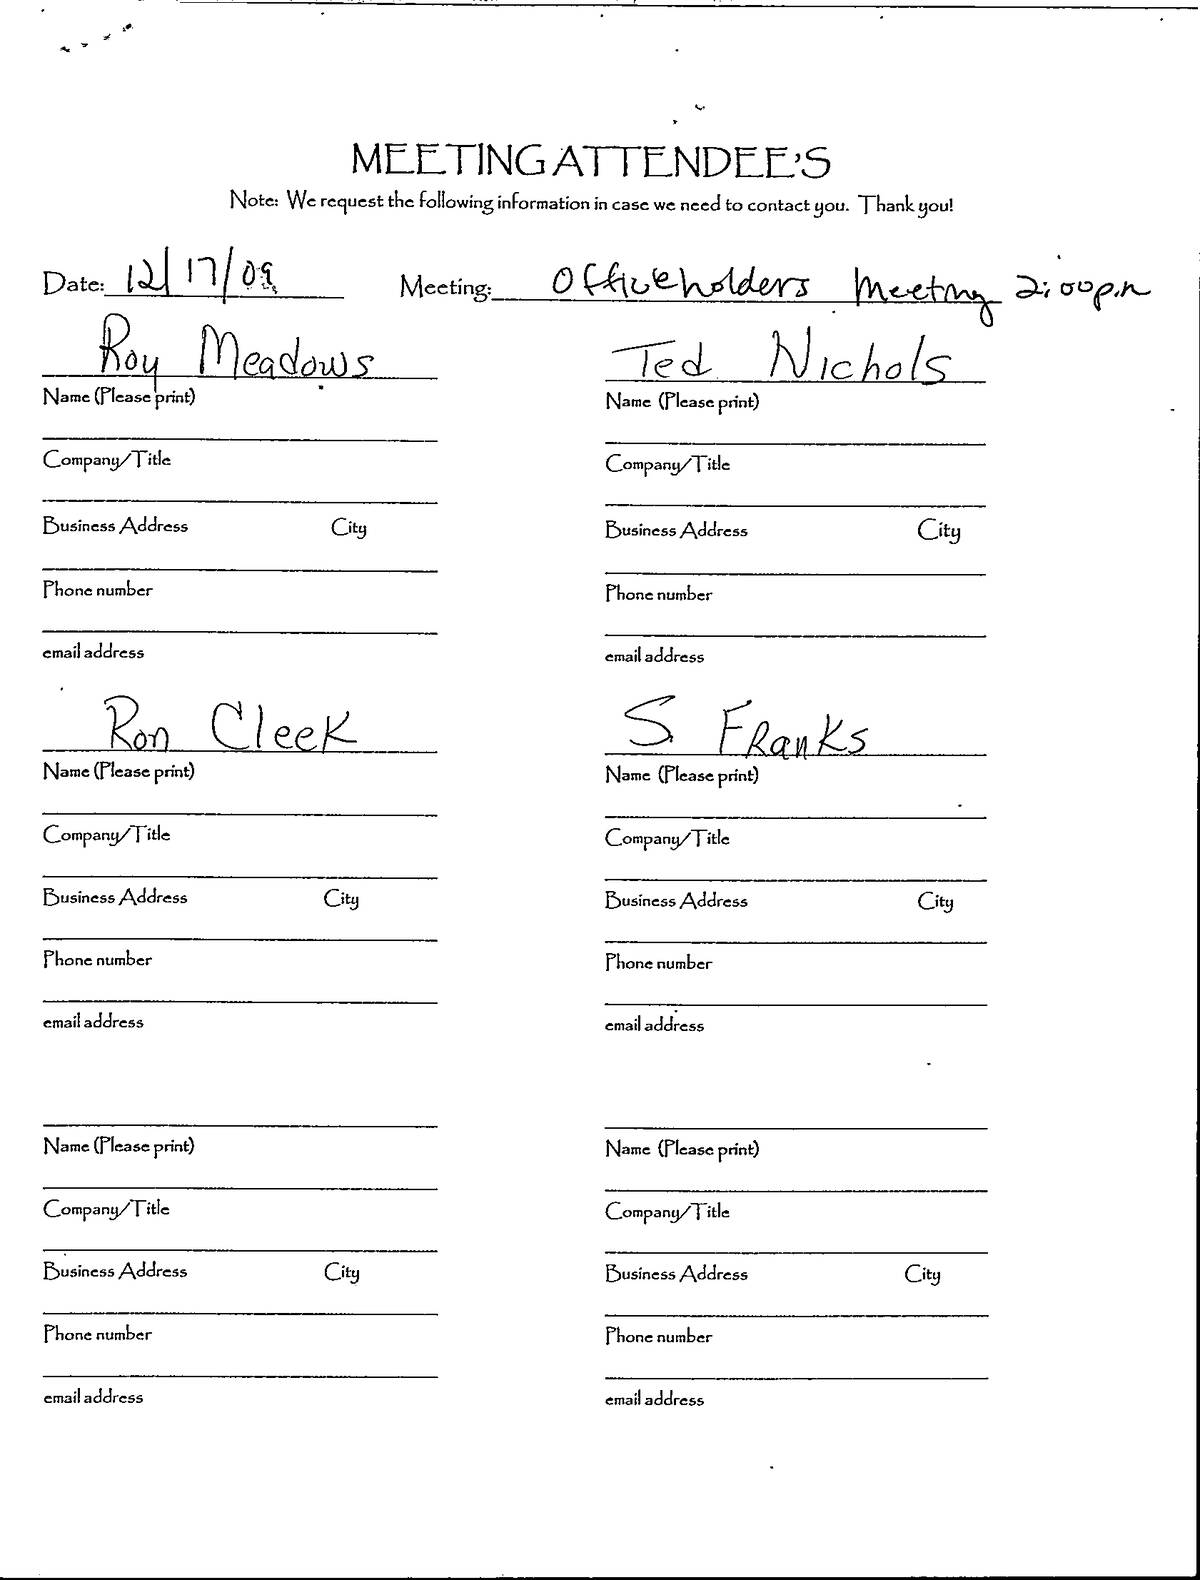 MEETING ATTENDEE'S
Note: We request the following information in case we need to contact you. Thank you!
Date: 12/17/09 Meeting: Officeholders Meeting 2:00p.m
Roy Meadows Ted Nichols
Name (Please print) Name (Please print)
Company/Title Company/Title
Business Address City Business Address City
Phone number Phone number
email address email address
Ron Cleek S. Franks
Name (Please print) Name (Please print)
Company/Title Company/Title
Business Address City Business Address City
Phone number Phone number
email address email address
Name (Please print) Name (Please print)
Company/Title Company/Title
Business Address City Business Address City
Phone number Phone number
email address email address